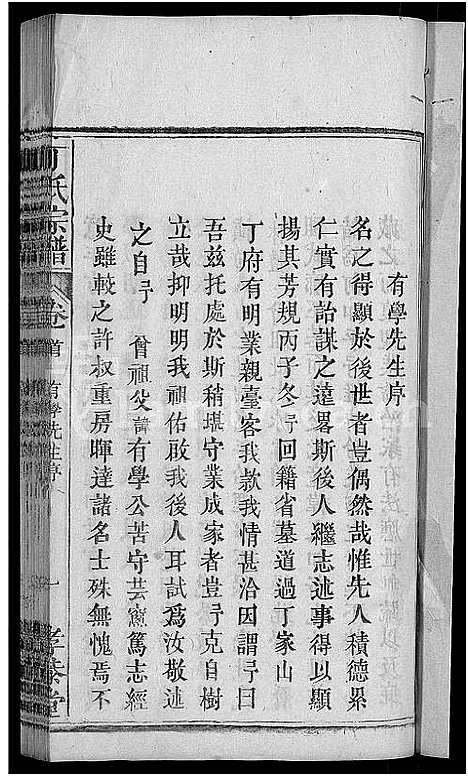 有學先生序
名之得顯於後世者豈偶然哉惟先人積德累
仁實有詒謀之遠畧斯後人繼志述事得以顯
揚其芳規丙子冬予回籍省墓道過丁家山
丁府有明業親臺客我款我情甚洽因謂予曰
吾兹托處於斯稍堪守業成家者豈予克自樹
立哉抑明明我祖佑啟我後人耳試爲汝敬述
之自予 曾祖父諱有學公苦守芸窻篤志經
史雖較之許叔重房暉達諸名士殊無愧焉不
氏宗譜 卷首 有學先生序 一